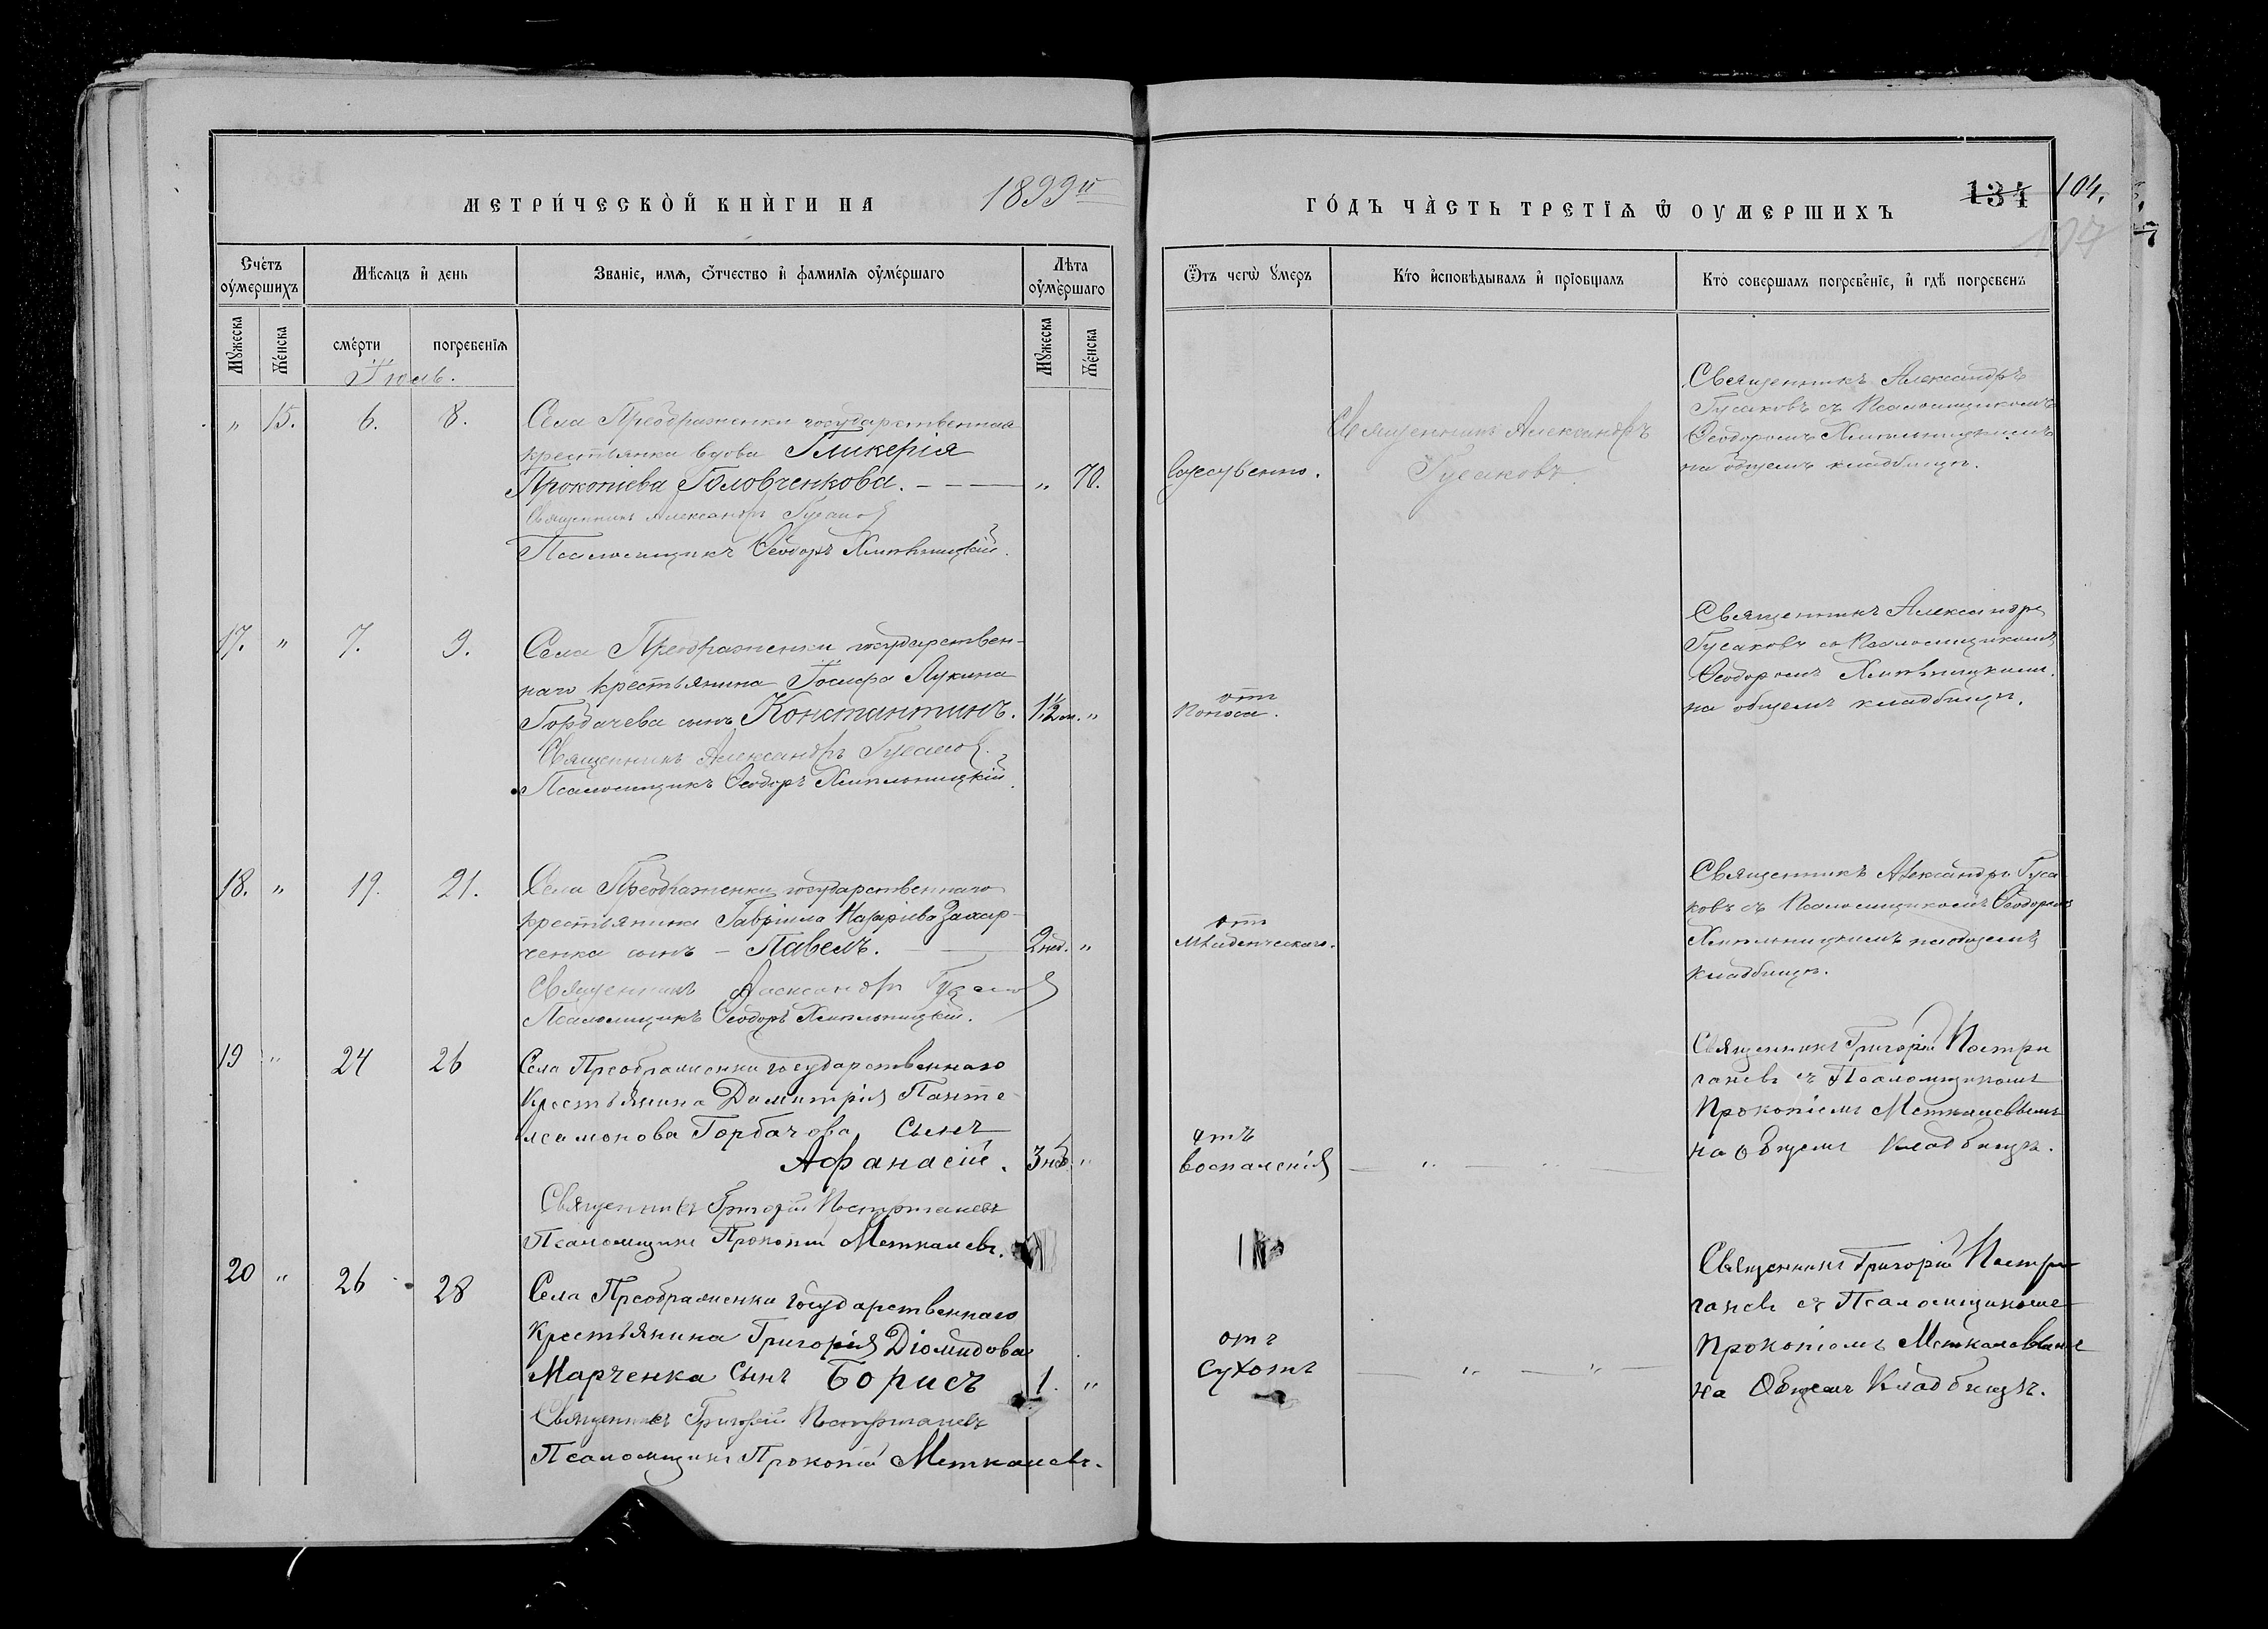 МЕТРИ́ЧЕСКО̀Й КНЍГИ НА 1899й
ГО́ДЪ ЧА̀СТЬ ТРЕТІѦ Ѿ ОУМЕРШИХЪ
134 104.
107
Сче́тъ оу҆ме́ршихъ
Мѣсѧцъ и҆ день
Званіе, имѧ, ѻ҆́тчество и҆ фамилїѧ оу҆ме́ршаго
Лѣ́та оу҆ме́ршаго
Ѿтъ чегѡ̀ у́меръ
Кто̀ и҆сповѣ́дывалъ и҆ прїобщалъ
Кто̀ соверша́лъ погребе́нїе, и҆ гдѣ̀ погребенъ
Мꙋ́жеска
Же́нска
сме́рти
погребенїѧ
Мꙋ́жеска
Же́нска
Іюль.
" 15. 6. 8.
Села Преображенки государственная
крестьянка вдова Гликерія
Прокопіева Головченкова. " 70.
Священникъ Александръ Гусаков
Псаломщикъ Ѳеодоръ Хмѣльницкій.
Священникъ Александръ
Гусаковъ.
Священникъ Александръ
Гусаковъ съ Псаломщикомъ
Ѳеодоромъ Хмѣльницкимъ
на общемъ кладбищѣ.
17. " 7. 9.
Села Преображенки государствен-
наго крестьянина Іосифа Лукина
Горбачева сынъ Константинъ. 1½ м. "
Священникъ Александръ Гусаков.
Псаломщикъ Ѳеодоръ Хмѣльницкій.
отъ
поноса.
Священникъ Александръ
Гусаковъ со Псаломщикомъ
Ѳеодоромъ Хмѣльницкимъ.
на общемъ кладбищѣ.
18. " 19. 21.
Села Преображенки государственнаго
крестьянина Гавріила Назаріева Захар-
ченка сынъ - Павелъ. 2 нед. "
Священникъ Александръ Гусаков
Псаломщикъ Ѳеодоръ Хмѣльницкій.
отъ
младенческаго.
Священникъ Александръ Гуса
ковъ съ Псаломщикомъ Ѳеодоромъ
Хмѣльницкимъ на общемъ
кладбищѣ.
19 " 24 26
Села Преображенки государственнаго
Крестьянина Димитрія Панте
леимонова Горбачова Сынъ
Афанасій. 3 нед. "
Священникъ Григорій
Псаломщикъ Прокопій Меткалевъ.
отъ
воспаленія
" "
Священникъ Григорій
съ Псаломщикомъ
Прокопіемъ Меткалевымъ
на общемъ Кладбищѣ.
20 " 26 28
Села Преображенки государственнаго
Крестьянина Григорія Діомидова
Марченка Сынъ Борисъ 1. "
Священникъ Григорій
Псаломщикъ Прокопій Меткалевъ.
отъ
Сухотъ
" "
Священникъ Григорій
съ Псаломщикомъ
Прокопіемъ Меткалевымъ
на Общемъ Кладбищѣ.